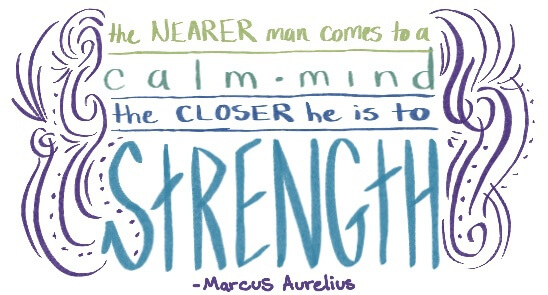 the NEARER man comes to a
calm-mind
the CLOSER he is to
StRENGtH
-Marcus Aurelius